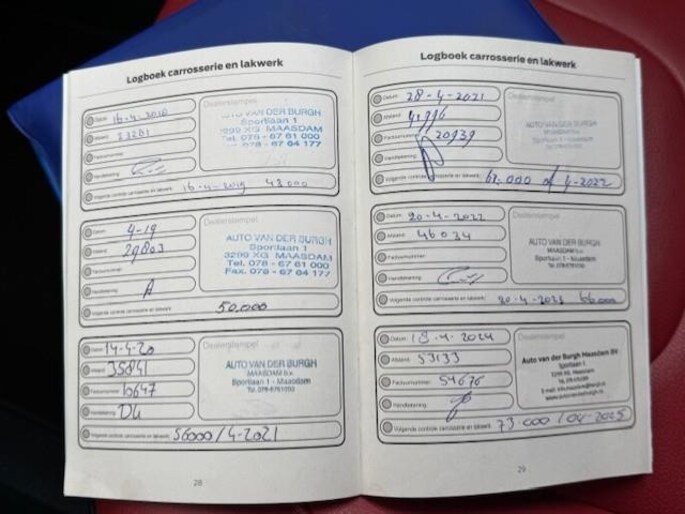 Logboek carrosserie en lakwerk
Datum:
Dealerstempel
Afstand:
Factuurnummer:
Handtekening:
AUTO VAN DER BURGH
Sportlaan 1
3299 XG MAASDAM
Tel. 078 - 67 61 000
Volgende controle carrosserie en lakwerk: 16-4-2019 48000
Datum: 4-19
Dealerstempel
Afstand: 29803
Factuurnummer:
Handtekening:
AUTO VAN DER BURGH
Sportlaan 1
3299 XG MAASDAM
Tel. 078 - 67 61 000
Fax. 078 - 67 64 177
Volgende controle carrosserie en lakwerk: 50.000
Datum: 14-4-20
Dealerstempel
Afstand: 35841
Factuurnummer: 10647
Handtekening:
AUTO VAN DER BURGH
MAASDAM b.v.
Sportlaan 1 - Maasdam
Tel. 078-6761000
Volgende controle carrosserie en lakwerk: 56000/4-2021
28
Logboek carrosserie en lakwerk
Datum: 28-4-2021
Dealerstempel
Afstand:
Factuurnummer: 20939
Handtekening:
AUTO VAN DER BURGH
MAASDAM b.v.
Volgende controle carrosserie en lakwerk: of 4-2022
Datum: 20-4-2022
Dealerstempel
Afstand: 46034
Factuurnummer:
Handtekening:
AUTO VAN DER BURGH
MAASDAM b.v.
Sportlaan 1 - Maasdam
Volgende controle carrosserie en lakwerk: 20-4-2023 66000
Datum: 18-4-2024
Dealerstempel
Afstand: 53133
Factuurnummer: 54676
Handtekening:
Auto van der Burgh Maasdam BV
Sportlaan 1
3299 XG, Maasdam
Volgende controle carrosserie en lakwerk: 73000/04-2025
29